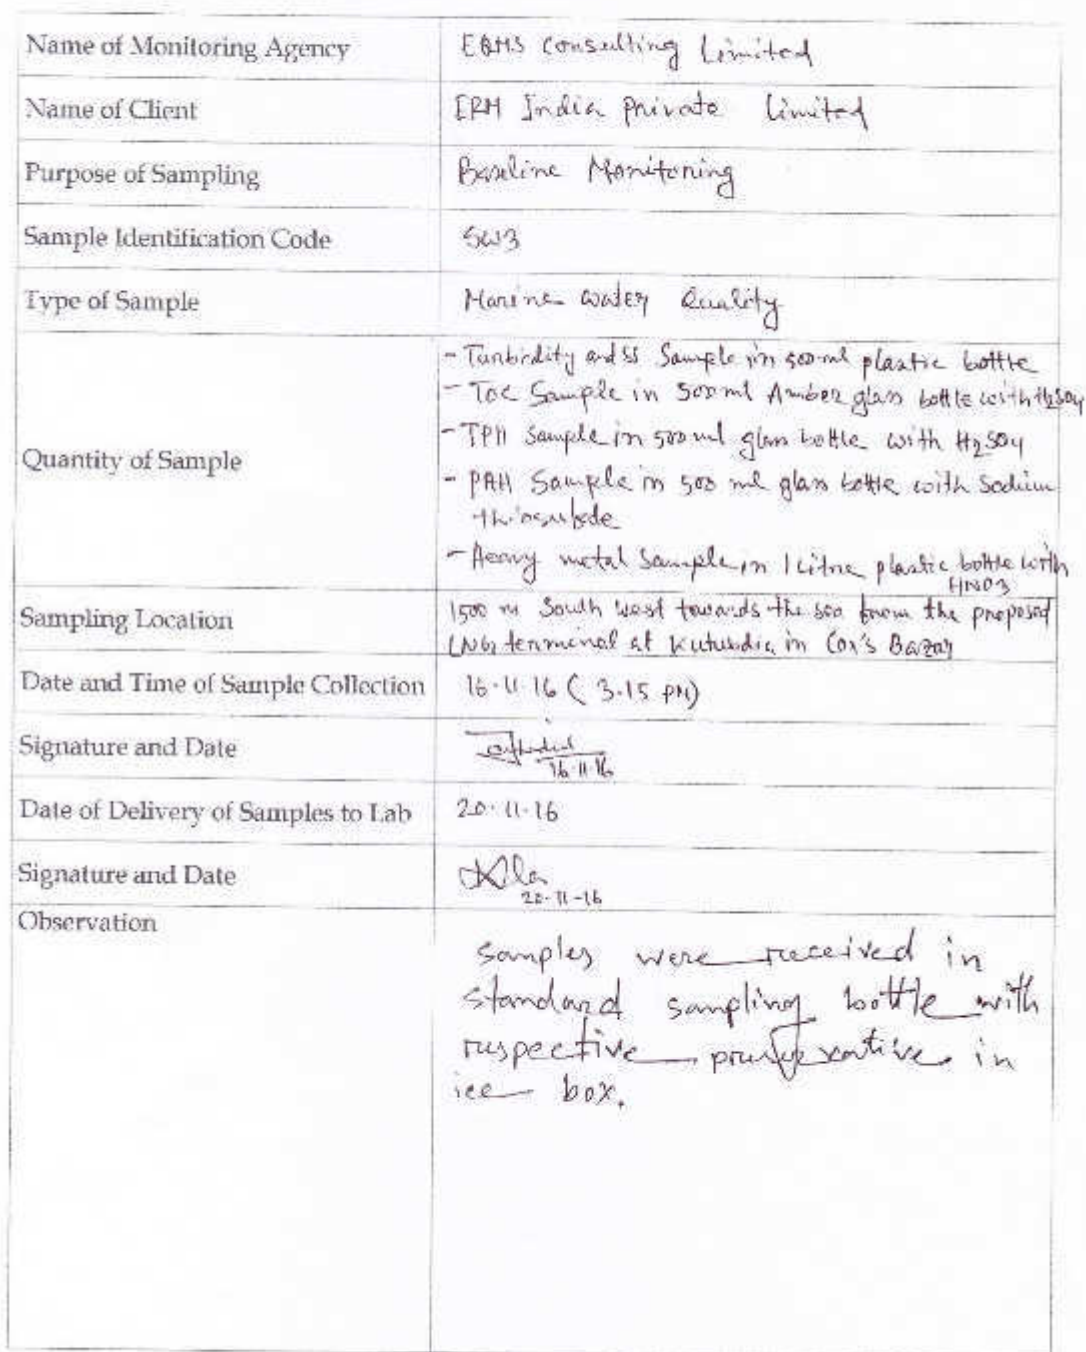 Name of Monitoring Agency EQMS Consulting Limited
Name of Client ERM India Private Limited
Purpose of Sampling Baseline Monitoring
Sample Identification Code SW3
Type of Sample Marine water Quality
Quantity of Sample
- Turbidity and SS Sample in 500 ml plastic bottle
- TOC Sample in 500 ml Amber glass bottle with H2SO4
- TPH Sample in 500 ml glass bottle with H2SO4
- PAH Sample in 500 ml glass bottle with Sodium
- Heavy metal Sample in 1 Litre plastic bottle with
HNO3
Sampling Location 1500 m South West towards the sea from the proposed
LNG terminal at Kutubdia in Cox's Bazar
Date and Time of Sample Collection 16.11.16 (3.15 PM)
Signature and Date
16.11.16
Date of Delivery of Samples to Lab 20.11.16
Signature and Date
20-11-16
Observation
samples were received in
standard sampling bottle with
respective preservative in
ice box.